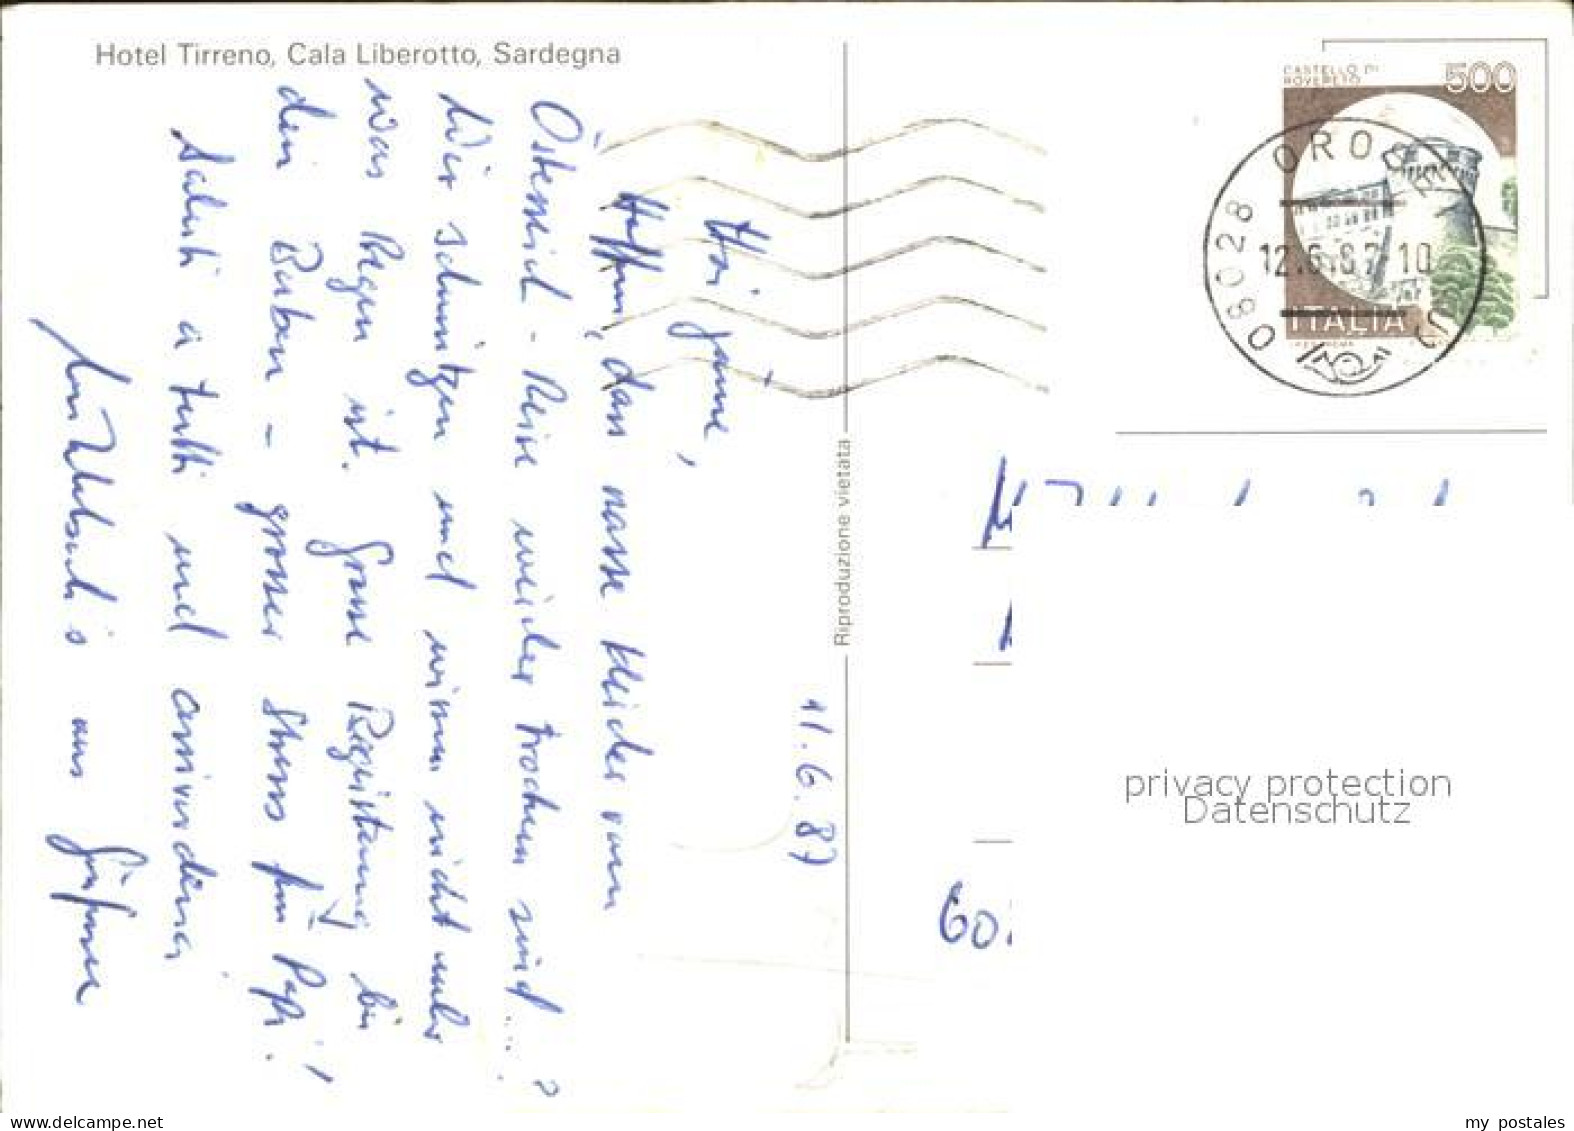 Hotel Tirreno, Cala Liberotto, Sardegna
Hoi
Hoffen, dass nasse Kleider vom
Österreich-Reise wieder trocken sind....?
Wir schwitzen und wissen nicht mehr
was Regen ist. Grosse Begeisterung bei
den Buben - grosser Stress für Papi!
Saluti a tutti und arrivederci
11.6.87
Riproduzione vietata
CASTELLO DI
ROVERETO
500
ITALIA
08028 OROSEI
12.6.87 10
60
privacy protection
Datenschutz
www.delcampe.net
my postales